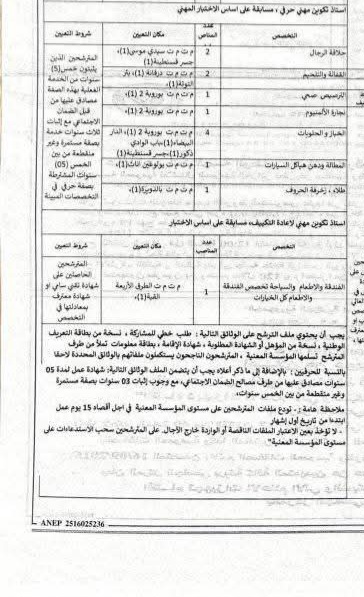 استاذ تكوين مهني حرفي ، مسابقة على اساس الاختبار المهني
التخصص
عدد المناصب
مكان التعيين
شروط التعيين
حلاقة الرجال
2
م ت م ت سيدي موسى(1)،
جسر قسنطينة(1)
2
م ت م ت درقانة (1)، بئر
التوتة(1)
الترصيص صحي
1
م ت م ت بوروبة 2 (1)،
نجارة الألمنيوم
1
م ت م ت بوروبة 2 (1)،
الخباز و الحلويات
4
م ت م ت بوروبة 2 (1)، الدار
البيضاء(1)،باب الوادي
ذكور(1)، جسر قسنطينة(1)
المطالة ودهن هياكل السيارات
1
م ت م ت بولوغين اناث(1)،
طلاء ، زخرفة الحروف
1
م ت م ت بالدويرة(1)،
المترشحين الذين
يثبتون خمس(5)
سنوات من الخدمة
الفعلية بهذه الصفة
مصادق عليها من
قبل الضمان
الاجتماعي مع إثبات
ثلاث سنوات خدمة
بصفة مستمرة وغير
منقطعة من بين
خمس (05)
سنوات المشترطة
بصفة حرفي في
التخصصات المبينة
استاذ تكوين مهني لاعادة التكييف، مسابقة على اساس الاختبار
التخصص
عدد المناصب
مكان التعيين
شروط التعيين
الفندقة والاطعام والسياحة تخصص الفندقة
والاطعام كل الخيارات
1
م ت م ت الطرق الأربعة
القبة(1)،
المترشحين
الحاصلين على
شهادة تقني سامي او
شهادة معترف
بمعادلتها في
التخصص
يجب أن يحتوي ملف الترشح على الوثائق التالية : طلب خطي للمشاركة ، نسخة من بطاقة التعريف
الوطنية ، نسخة من المؤهل أو الشهادة المطلوبة ، شهادة الإقامة ، بطاقة معلومات تملأ من طرف
المترشح تسلمها المؤسسة المعنية ، المترشحون الناجحون يستكملون ملفاتهم بالوثائق المحددة لاحقا
بالنسبة للحرفيين : بالإضافة إلى ما ذكر أعلاه يجب أن يتضمن الملف الوثائق التالية: شهادة عمل لمدة 05
سنوات مصادق عليها من طرف مصالح الضمان الاجتماعي، مع وجوب إثبات 03 سنوات بصفة مستمرة
وغير منقطعة من بين الخمس سنوات.
ملاحظة هامة : تودع ملفات المترشحين على مستوى المؤسسة المعنية في اجل أقصاه 15 يوم عمل
ابتداءا من تاريخ أول إشهار
- لا تؤخذ بعين الاعتبار الملفات الناقصة أو الواردة خارج الآجال. على المترشحين سحب الاستدعاءات على
مستوى المؤسسة المعنية"
ANEP 2516025236